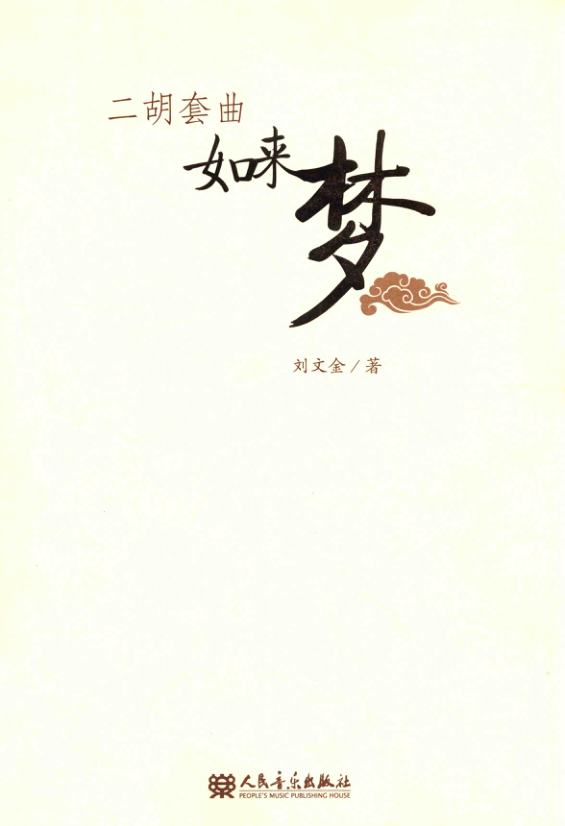 二胡套曲
如来
梦
刘文金/著
人民音乐出版社
PEOPLE'S MUSIC PUBLISHING HOUSE